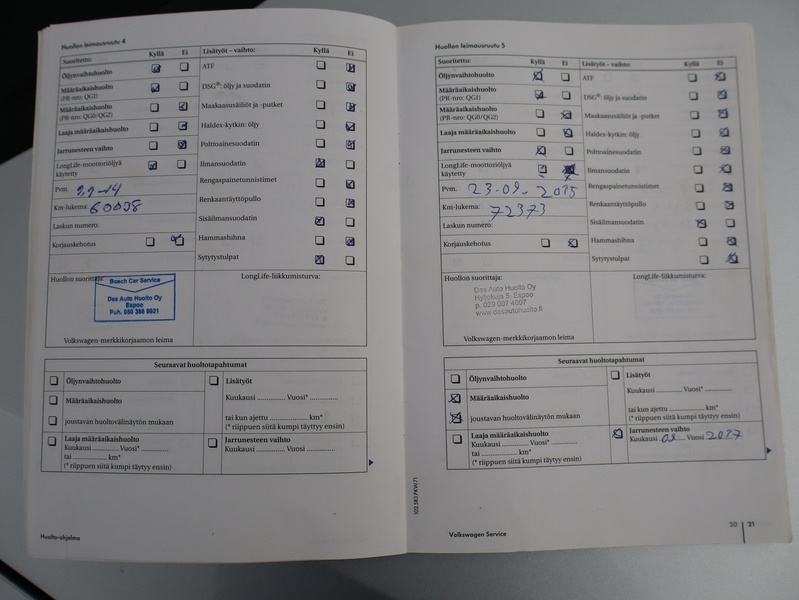 Huollon leimausruutu 4
Suoritettu: Kyllä Ei
Öljynvaihtohuolto
Määräaikaishuolto
(PR-nro: QG1)
Määräaikaishuolto
(PR-nro: QG0/QG2)
Laaja määräaikaishuolto
Jarrunesteen vaihto
LongLife-moottoriöljyä
käytetty
Pvm.
Km-lukema: 60038
Laskun numero:
Korjauskehotus
Lisätyöt – vaihto: Kyllä Ei
ATF
DSG®: öljy ja suodatin
Maakaasusäiliöt ja -putket
Haldex-kytkin: öljy
Polttoainesuodatin
Ilmansuodatin
Rengaspainetunnistimet
Renkaantäyttöpullo
Sisäilmansuodatin
Hammashihna
Sytytystulpat
Huollon suorittaja:
Bosch Car Service
Das Auto Huolto Oy
Espoo
Puh. 050 388 8921
Volkswagen-merkkikorjaamon leima
LongLife-liikkumisturva:
Seuraavat huoltotapahtumat
Öljynvaihtohuolto
Määräaikaishuolto
joustavan huoltovälinäytön mukaan
Laaja määräaikaishuolto
Kuukausi Vuosi*
tai km*
(* riippuen siitä kumpi täytyy ensin)
Lisätyöt
Kuukausi Vuosi*
tai kun ajettu km*
(* riippuen siitä kumpi täytyy ensin)
Jarrunesteen vaihto
Kuukausi Vuosi
Huolto-ohjelma
Huollon leimausruutu 5
Suoritettu: Kyllä Ei
Öljynvaihtohuolto
Määräaikaishuolto
(PR-nro: QG1)
Määräaikaishuolto
(PR-nro: QG0/QG2)
Laaja määräaikaishuolto
Jarrunesteen vaihto
LongLife-moottoriöljyä
käytetty
Pvm. 23-09-2015
Km-lukema: 72373
Laskun numero:
Korjauskehotus
Lisätyöt – vaihto: Kyllä Ei
ATF
DSG®: öljy ja suodatin
Maakaasusäiliöt ja -putket
Haldex-kytkin: öljy
Polttoainesuodatin
Ilmansuodatin
Rengaspainetunnistimet
Renkaantäyttöpullo
Sisäilmansuodatin
Hammashihna
Sytytystulpat
Huollon suorittaja:
Das Auto Huolto Oy
Hyljekuja 5, Espoo
p. 029 007 4007
www.dasautohuolto.fi
Volkswagen-merkkikorjaamon leima
LongLife-liikkumisturva:
Seuraavat huoltotapahtumat
Öljynvaihtohuolto
Määräaikaishuolto
joustavan huoltovälinäytön mukaan
Laaja määräaikaishuolto
Kuukausi Vuosi*
tai km*
(* riippuen siitä kumpi täytyy ensin)
Lisätyöt
Kuukausi Vuosi*
tai kun ajettu km*
(* riippuen siitä kumpi täytyy ensin)
Jarrunesteen vaihto
Kuukausi 09 Vuosi 2017
Volkswagen Service
20 21